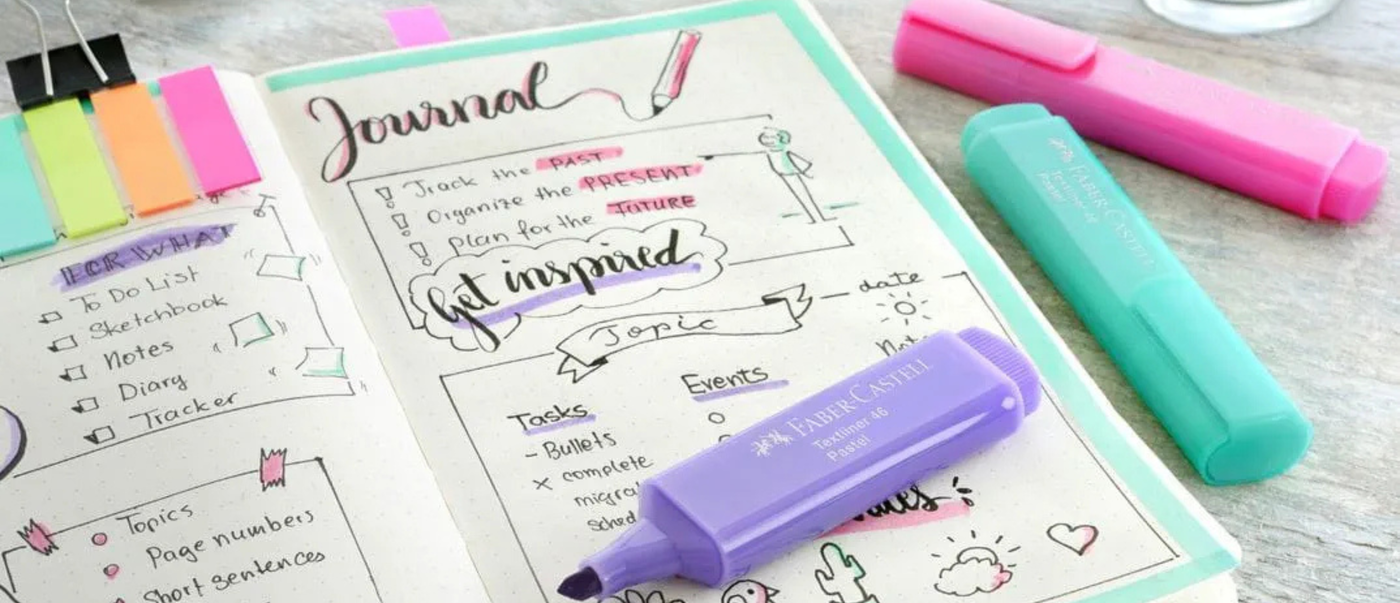 FOR WHAT
To Do List
Sketchbook
Notes
Diary
Tracker
Topics
Page numbers
Short sentences
Journal
Track the PAST
Organize the PRESENT
plan for the FUTURE
Get inspired
Topic
date
Tasks
Events
- Bullets
x complete
FABER-CASTELL
Textliner 46
Pastel
FABER-CASTELL
Textliner 46
Pastel